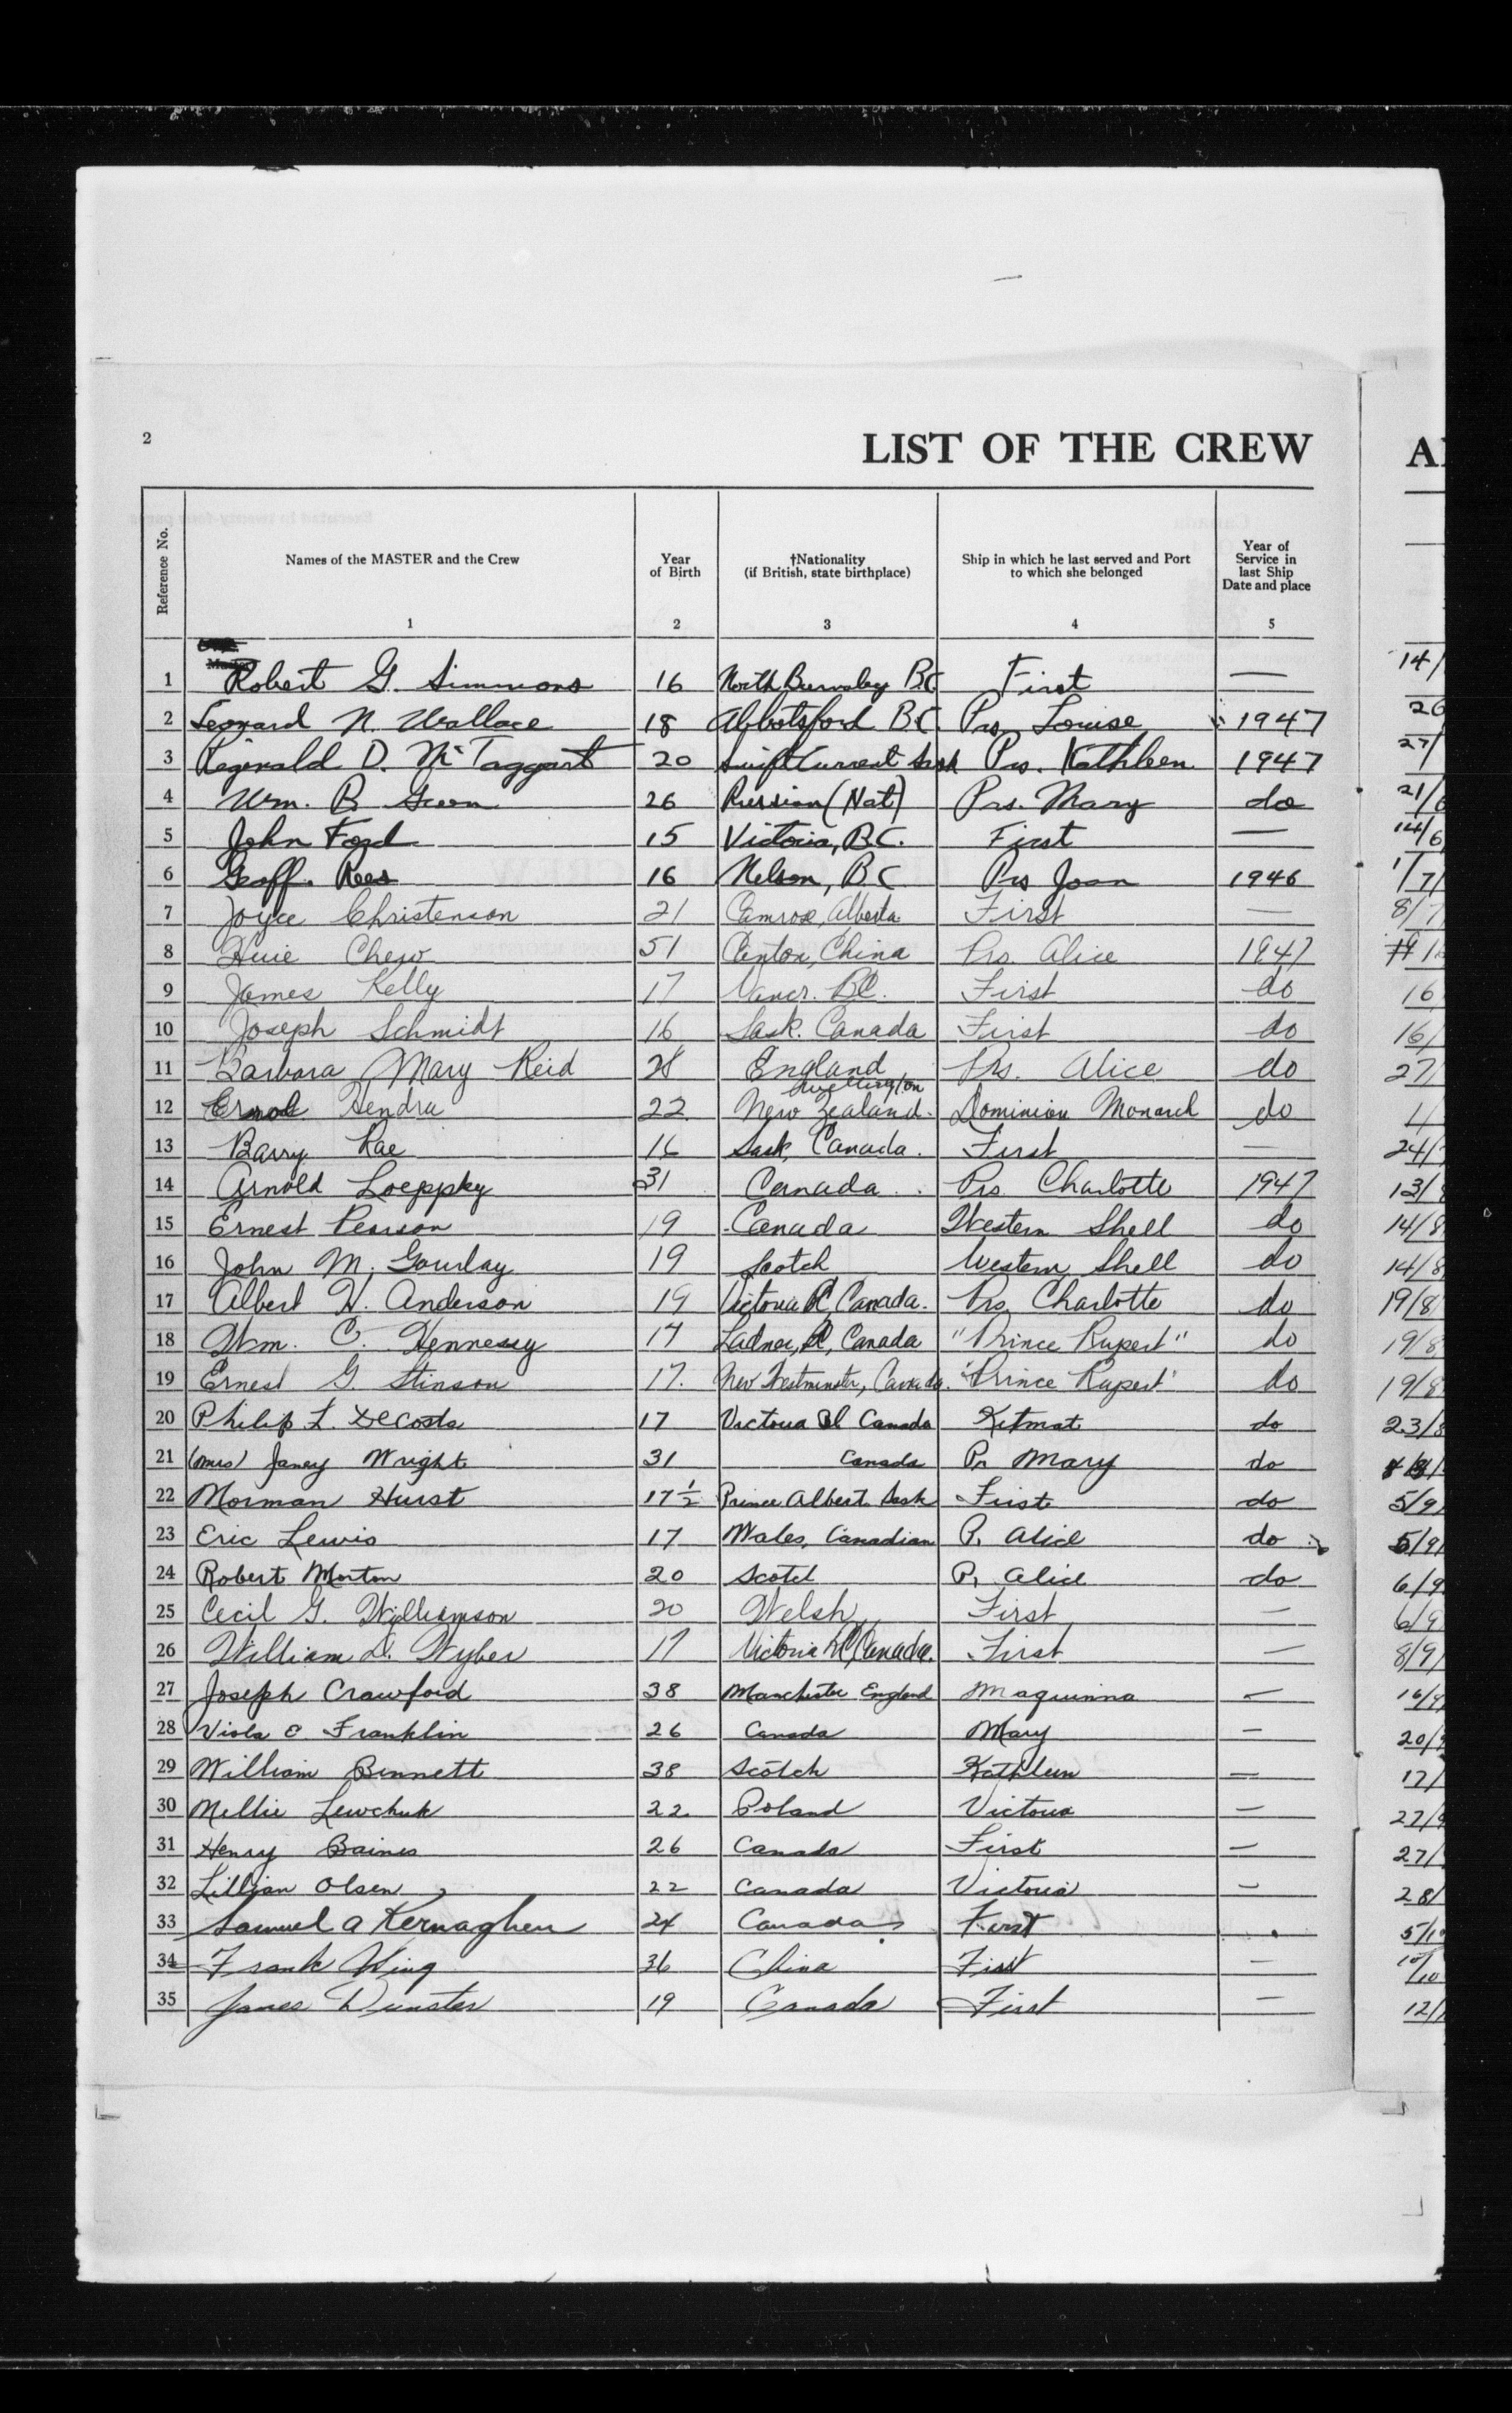 2
LIST OF THE CREW
Reference No.
Names of the MASTER and the Crew
Year of Birth
†Nationality (if British, state birthplace)
Ship in which he last served and Port to which she belonged
Year of Service in last Ship Date and place
1 2 3 4 5
1 Robert G. Simmons 16 North Burnaby B.C. First —
2 Leonard N. Wallace 18 Abbotsford B.C. Prs Louise 1947
3 Reginald D. McTaggart 20 Swift Current Sask Prs. Kathleen 1947
4 Wm. B. 26 Russian (Nat) Prs. Mary do
5 John Ford 15 Victoria, B.C. First —
6 Geoff. Rees 16 Nelson, B.C Prs Joan 1946
7 Joyce Christenson 21 Camrose, Alberta First —
8 Huie Chew 51 Canton, China Prs. Alice 1947
9 James Kelly 17 Vancr. B.C. First do
10 Joseph Schmidt 16 Sask. Canada First do
11 Barbara Mary Reid 28 England Prs. Alice do
12 Hendra 22 Wellington New Zealand. Dominion Monarch do
13 Barry Rae 16 Sask, Canada. First —
14 Arnold Loeppky 31 Canada. Prs. Charlotte 1947
15 Ernest Pearson 19 Canada Western Shell do
16 John M. Gourlay 19 Scotch Western Shell do
17 Albert H. Anderson 19 Victoria BC, Canada. Prs. Charlotte do
18 Wm. C. Hennessy 17 Ladner, BC, Canada "Prince Rupert" do
19 Ernest G. Stinson 17. New Westminster, Canada. "Prince Rupert" do
20 Philip L. DeCosta 17 Victoria BC Canada Kitmat do
21 (Mrs) Janey Wright 31 Canada Pr Mary do
22 Norman Hurst 17½ Prince Albert Sask First do
23 Eric Lewis 17 Wales, Canadian P. Alice do
24 Robert Morton 20 Scotch P. Alice do
25 Cecil G. Williamson 20 Welsh First —
26 William D. Wyber 17 Victoria BC, Canada. First —
27 Joseph Crawford 38 Manchester England Maquinna —
28 Viola E. Franklin 26 Canada Mary —
29 William Bennett 38 Scotch Kathleen —
30 Nellie Lewchuk 22 Poland Victoria —
31 Henry Baines 26 Canada First —
32 Lillian Olsen 22 Canada Victoria —
33 Samuel A Kernaghen 24 Canada First
34 Frank Wing 36 China First —
35 James Dunster 19 Canada First —